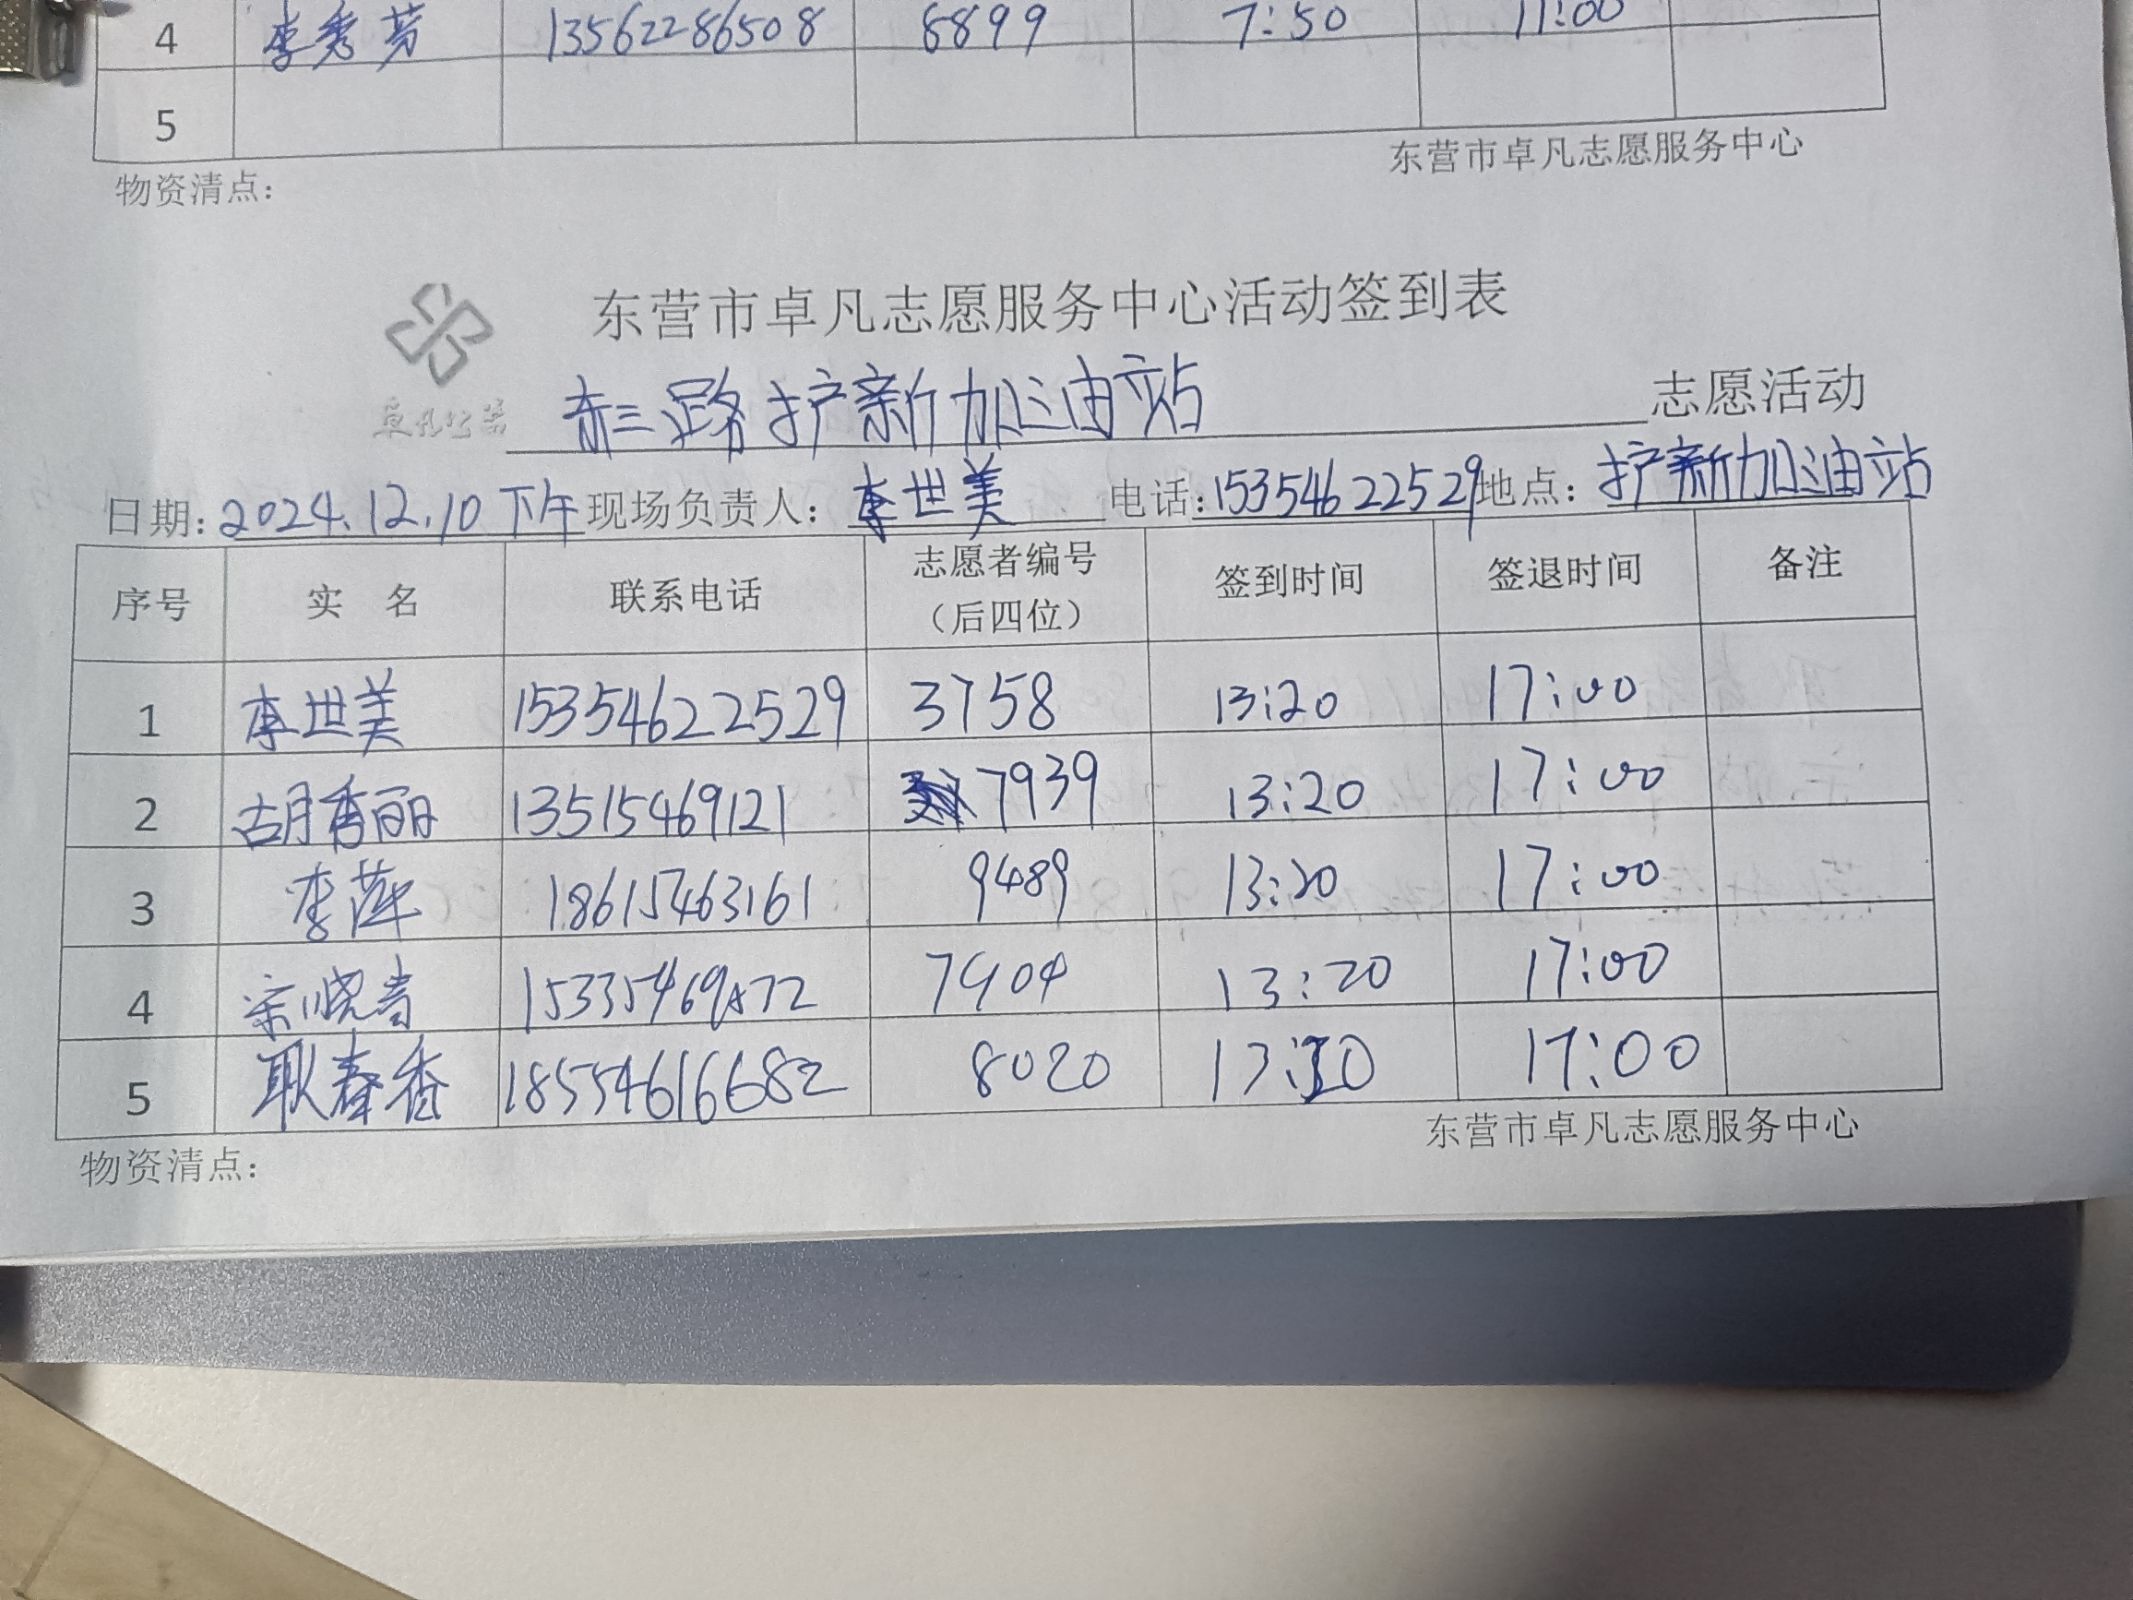 4 李秀芳 13562286508 8899 7:50 11:00
5
东营市卓凡志愿服务中心
物资清点：
东营市卓凡志愿服务中心活动签到表
卓凡公益
东三路护新加油站 志愿活动
日期：2024.12.10 下午 现场负责人：李世美 电话：15354622529 地点：护新加油站
序号 实 名 联系电话 志愿者编号（后四位） 签到时间 签退时间 备注
1 李世美 15354622529 3758 13:20 17:00
2 胡秀丽 13515469121 7939 13:20 17:00
3 李萍 18615463161 9489 13:20 17:00
4 宋晓青 7904 13:20 17:00
5 耿春香 18554616682 8020 17:00
东营市卓凡志愿服务中心
物资清点：